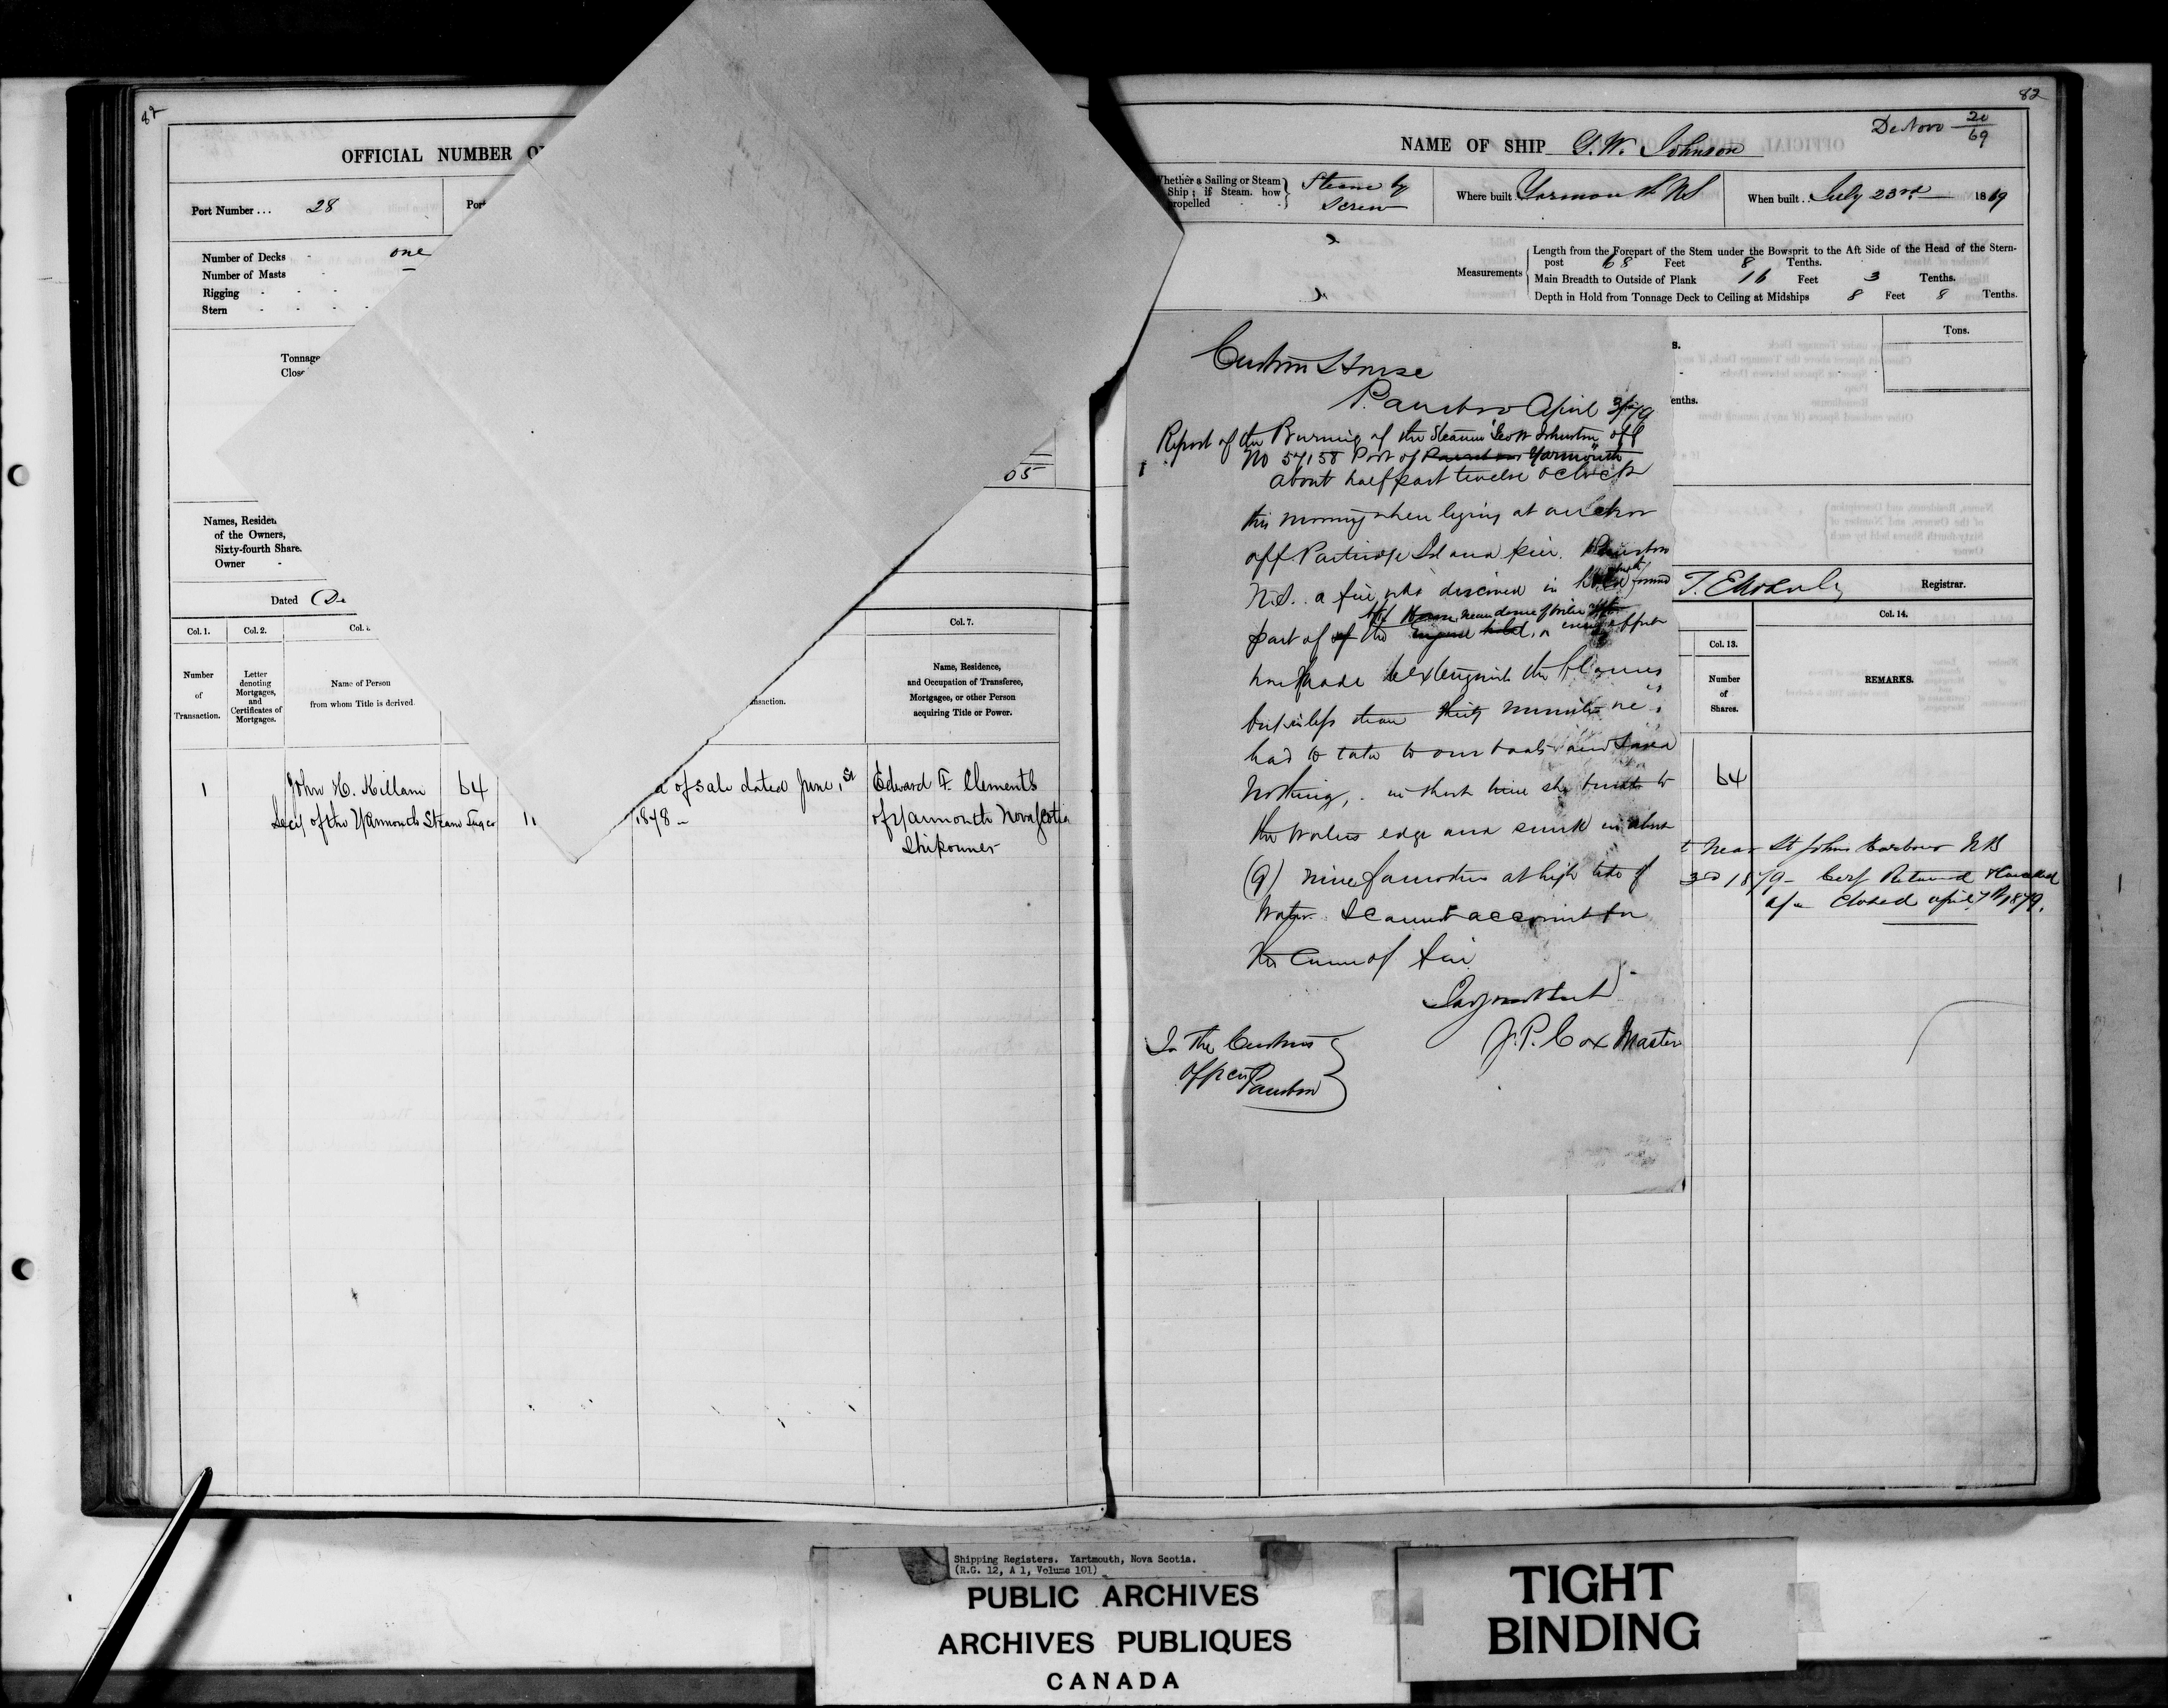 82
OFFICIAL NUMBER O
Port Number... 28
Port
Number of Decks - one
Number of Masts
Rigging
Stern
Tonnage
Close
05
Names, Residen
of the Owners,
Sixty-fourth Share
Owner
Dated De
Col. 1.
Col. 2.
Col.
Col. 7.
Number of Transaction.
Letter denoting Mortgages, and Certificates of Mortgages.
Name of Person from whom Title is derived.
nsaction.
Name, Residence, and Occupation of Transferee, Mortgagee, or other Person acquiring Title or Power.
1 John H. Killam 64 of sale dated June 1st Edward F. Clements
Secy of the Yarmouth Steam Tug Co 11 1878 - of Yarmouth Nova Scotia
Shipowner
82
De Novo 20/69
NAME OF SHIP G. W. Johnson
Whether a Sailing or Steam Ship; if Steam, how propelled
Steam by Screw
Where built Yarmouth NS
When built.. July 23rd 1869
Measurements
Length from the Forepart of the Stem under the Bowsprit to the Aft Side of the Head of the Stern-
post 68 Feet 8 Tenths.
Main Breadth to Outside of Plank 16 Feet 3 Tenths.
Depth in Hold from Tonnage Deck to Ceiling at Midships 8 Feet 8 Tenths.
Tons.
s.
enths.
Custom House
Parrsboro April 3/79
Report of the Burning of the Steamer Geo W Johnston off
No 57158 Port of Yarmouth
about half past twelve oclock
this morning when lying at anchor
off Partridge Island pier. Parrsboro
N.S. a fire was discovered in
part of the
made to extinguish the flames
but in less than thirty minutes we
had to take to our boats and saved
Nothing, in short time she burnt to
the waters edge and sunk in about
(9) nine famothes at high tide of
Water. I cannot account for
the cause of fire
J. P. Cox Master
To the Customs
Officer Parrsboro
Registrar.
Col. 13.
Col. 14.
Number of Shares.
REMARKS.
64
t near St Johns Harbour NB
3rd 1879 - Cerf Returned & Cancelled
a/c Closed april 7th 1879.
Shipping Registers. Yartmouth, Nova Scotia.
(R.G. 12, A 1, Volume 101)
PUBLIC ARCHIVES
ARCHIVES PUBLIQUES
CANADA
TIGHT
BINDING